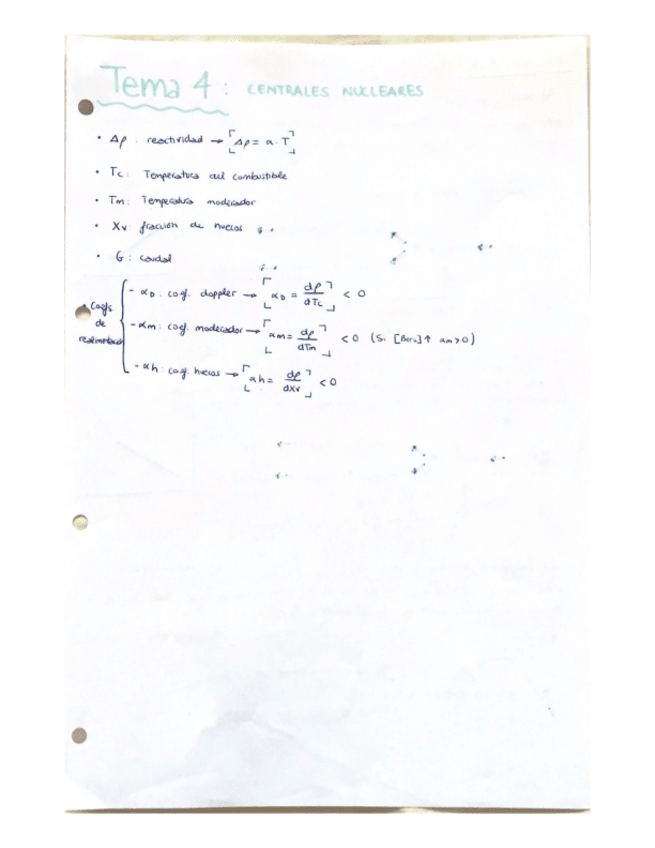 Tema 4 : CENTRALES NUCLEARES
• Δρ : reactividad → [Δρ = α · T]
• Tc : Temperatura del combustible
• Tm : Temperatura moderador
• Xv : fracción de huecos
• G : caudal
• Coefs de realimentación
- αD : coef. doppler → [αD = dρ/dTc] < 0
- αm : coef. moderador → [αm = dρ/dTm] < 0 (Si [Boro]↑ αm>0)
- αh : coef. huecos → [αh = dρ/dXv] < 0